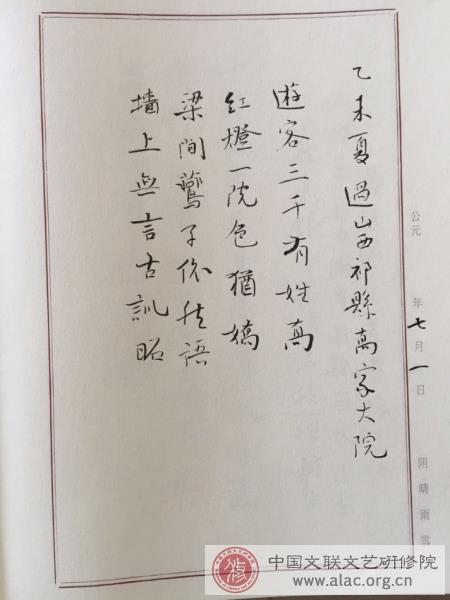 公元 年七月一日 阴晴雨雪
乙未夏過山西祁縣喬家大院
遊客三千有姓喬
红燈一院色猶嬌
梁間鷰子依然語
墻上無言古訓昭
中国文联文艺研修院
www.alac.org.cn